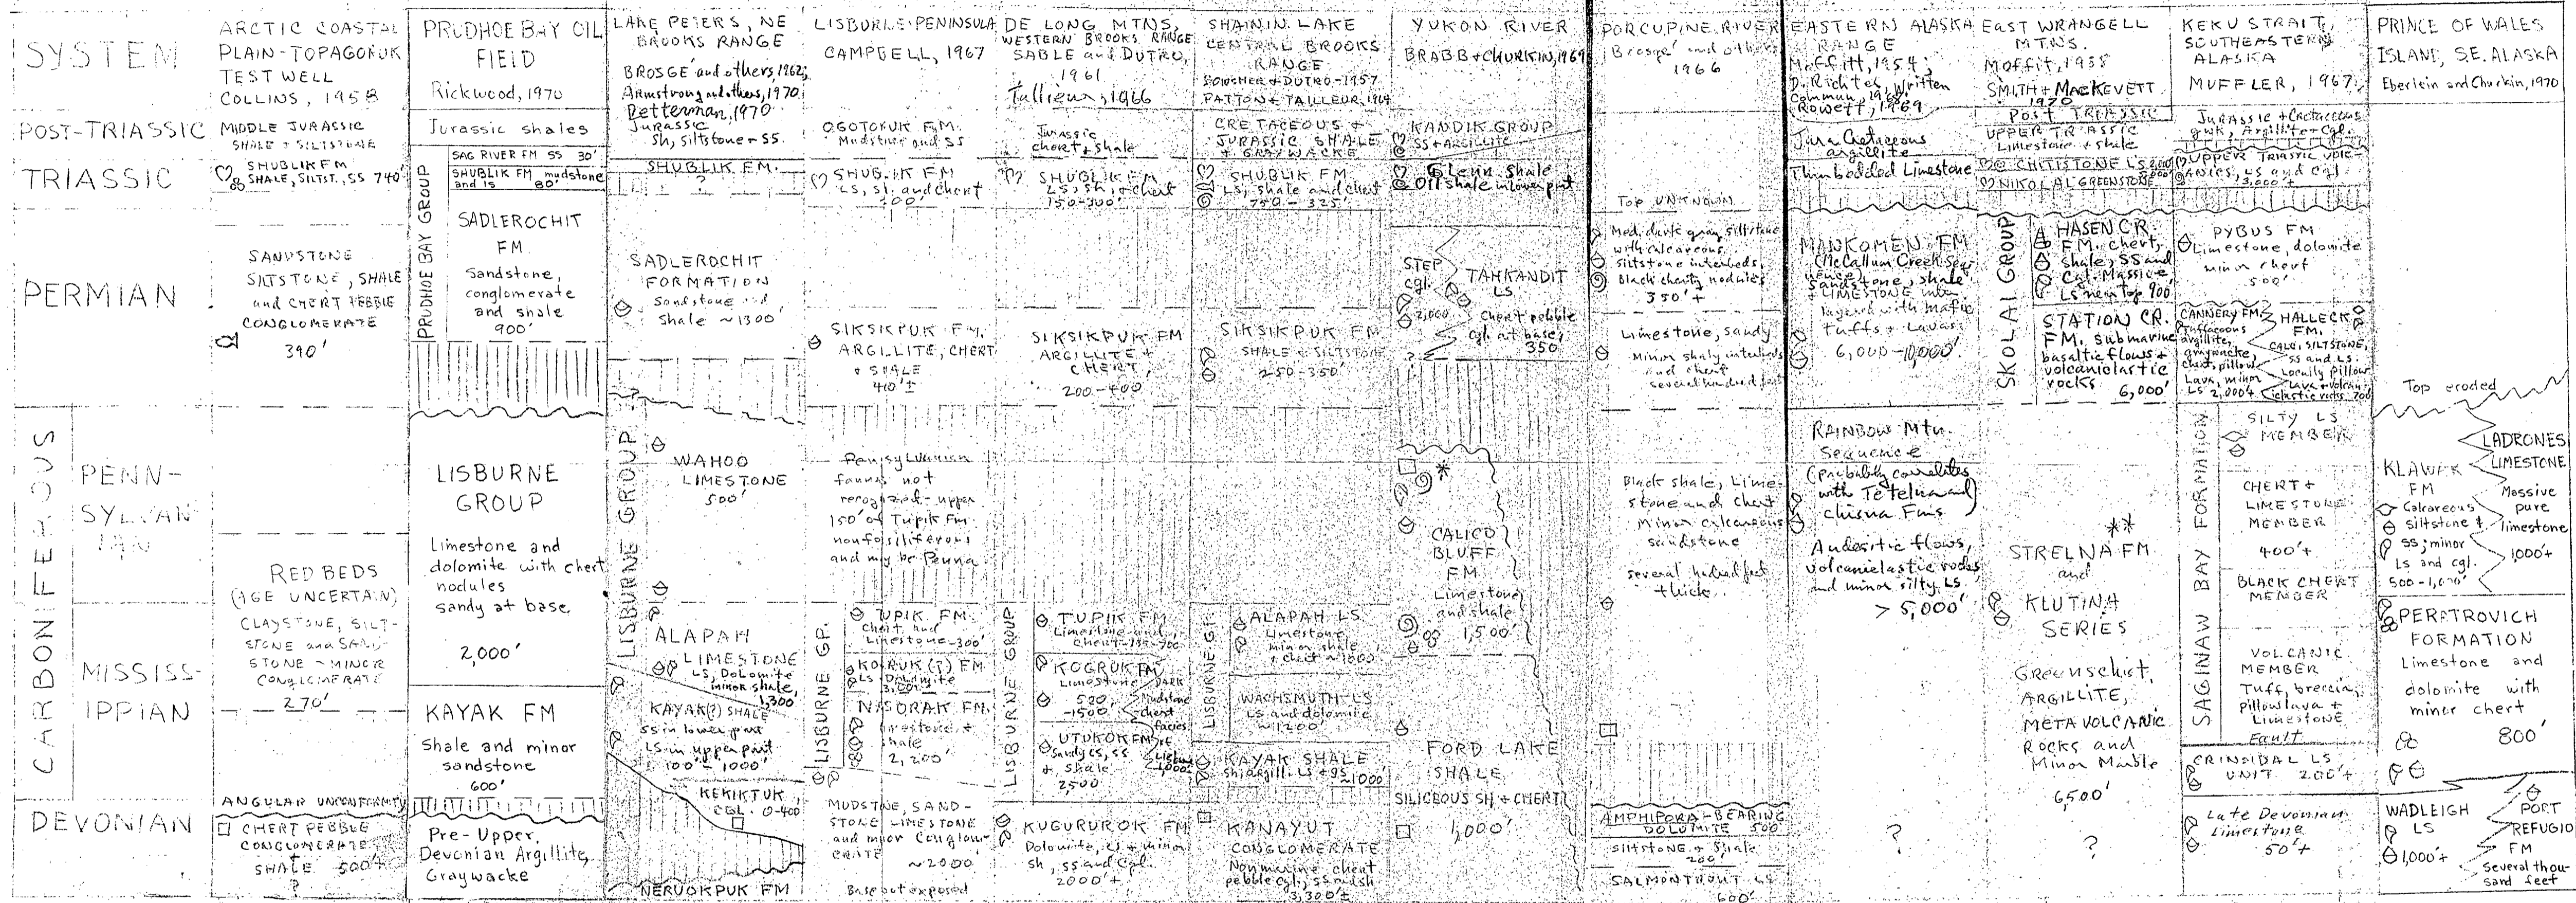 SYSTEM
POST-TRIASSIC
TRIASSIC
PERMIAN
CARBONIFEROUS
PENN-
SYLVAN
IAN
MISSISS-
IPPIAN
DEVONIAN
ARCTIC COASTAL
PLAIN-TOPAGORUK
TEST WELL
COLLINS, 1958
MIDDLE JURASSIC
SHALE + SILTSTONE
SHUBLIK FM
SHALE, SILTST., SS 740'
SANDSTONE
SILTSTONE, SHALE
and CHERT PEBBLE
CONGLOMERATE
390'
RED BEDS
(AGE UNCERTAIN)
CLAYSTONE, SILT-
STONE and SAND-
STONE - MINOR
CONGLOMERATE
270'
ANGULAR UNCONFORMITY
CHERT PEBBLE
CONGLOMERATE
SHALE 500'+
?
PRUDHOE BAY OIL
FIELD
Rickwood, 1970
Jurassic shales
PRUDHOE BAY GROUP
SAG RIVER FM SS 30'
SHUBLIK FM mudstone
and ls 80'
SADLEROCHIT
FM
Sandstone,
conglomerate
and shale
900'
LISBURNE
GROUP
Limestone and
dolomite with chert
nodules
sandy at base
2,000'
KAYAK FM
Shale and minor
sandstone
600'
Pre-Upper
Devonian Argillite,
Graywacke
LAKE PETERS, NE
BROOKS RANGE
BROSGE and others, 1962;
Armstrong and others, 1970;
Detterman, 1970
Jurassic
sh, siltstone + SS.
SHUBLIK FM.
?
SADLEROCHIT
FORMATION
Sandstone and
Shale ~1300'
LISBURNE GROUP
WAHOO
LIMESTONE
500'
ALAPAH
LIMESTONE
LS, Dolomite
minor shale,
1,300
KAYAK(?) SHALE
SS in lower part
LS in upper part
100' - 1000'
KEKIKTUK
CGL. 0-400
NERUOKPUK FM
LISBURNE PENINSULA
CAMPBELL, 1967
OGOTORUK FM.
Mudstone and SS
SHUBLIK FM
LS, sh, and chert
200'
SIKSIKPUK FM.
ARGILLITE, CHERT
+ SHALE
410'±
Pennsylvanian
fauna not
recognized - upper
150' of Tupik Fm.
nonfossiliferous
and may be Penna
LISBURNE GP.
TUPIK FM.
Chert and
Limestone - 300'
KOGRUK (?) FM
LS Dolomite
NASORAK FM.
Limestone +
shale
2,200'
MUDSTNE, SAND-
STONE LIMESTONE
and minor Conglom-
ERATE
~2000
Base not exposed
DE LONG MTNS,
WESTERN BROOKS RANGE
SABLE and DUTRO,
1961
Tailleur, 1966
Jurassic
chert + shale
SHUBLIK FM
LS, sh, + chert
150-300'
SIKSIKPUK FM
ARGILLITE +
CHERT
200-400
LISBURNE GROUP
TUPIK FM
Limestone and
KOGRUK FM
Limestone
500
-1500'
DARK
Mudstone
chert
facies
UTUKOK FM
Sandy LS, SS
+ Shale
2500'
KUGURUROK FM
Dolomite, LS + minor
sh, SS and Cgl.
2000'+
SHAININ LAKE
CENTRAL BROOKS
RANGE
BOWSHER + DUTRO - 1957
PATTON + TAILLEUR, 1964
CRETACEOUS +
JURASSIC SHALE
+ GRAYWACKE
SHUBLIK FM
LS, shale and chert
SIKSIKPUK FM
SHALE + SILTSTONE
250-350'
LISBURNE GP.
ALAPAH LS
Limestone,
minor shale
WACHSMUTH LS
LS and dolomite
~1200'
KAYAK SHALE
KANAYUT
CONGLOMERATE
Nonmarine chert
pebble cgl., SS and sh
3,300'±
YUKON RIVER
BRABB + CHURKIN, 1969
KANDIK GROUP
SS + ARGILLITE
Glenn Shale
Oil shale in lower part
STEP
cgl.
2,000
TAHKANDIT
LS
Chert pebble
cgl. at base,
350
*
CALICO
BLUFF
FM
Limestone
and shale
1,500'
FORD LAKE
SHALE
SILICEOUS SH + CHERT
1,000'
PORCUPINE RIVER
Brosge' and others
1966
Top UNKNOWN
Med. dark gray siltstone
with calcareous
siltstone interbeds
Black cherty nodules
350'+
Limestone, sandy
Minor shaly interbeds
and chert
several hundred feet
Black shale, Lime-
stone and chert
Minor calcareous
sandstone
several hundred feet
thick
AMPHIPORA-BEARING
DOLOMITE 500'
Siltstone + Shale
200'
SALMONTROUT LS
600'
EASTERN ALASKA
RANGE
Moffitt, 1954;
D. Richter, written
Commun, 1968;
Rowett, 1969
Jura Cretaceous
argillite
Thin bedded Limestone
MANKOMEN FM
(McCallum Creek Seq-
uence)
Sandstone, shale
+ LIMESTONE inter
layered with mafic
tuffs + Lavas
6,000-10,000'
RAINBOW Mtn.
Sequence
(probably correlates
with Tetelna and
Chisna Fms
Andesitic flows,
volcaniclastic rocks
and minor silty LS
> 5,000'
?
EAST WRANGELL
MTNS.
Moffit, 1938
SMITH + MACKEVETT
1970
POST TRIASSIC
UPPER TRIASSIC
Limestone + shale
CHITISTONE LS
NIKOLAI GREENSTONE
SKOLAI GROUP
HASEN CR.
FM. chert,
shale, SS and
Cgl. Massive
LS near Top 900'
STATION CR.
FM. submarine
basaltic flows +
volcaniclastic
rocks
6,000'
**
STRELNA FM
and
KLUTINA
SERIES
Greenschist,
ARGILLITE,
METAVOLCANIC
Rocks and
Minor Marble
6,500'
?
KEKU STRAIT,
SOUTHEASTERN
ALASKA
MUFFLER, 1967
JURASSIC + Cretaceous
gwk, Argillite + Cgl.
UPPER TRIASSIC VOLC-
ANICS, LS and cgl.
3,000'+
PYBUS FM
Limestone, dolomite
minor chert
500'
CANNERY FM.
Tuffaceous
argillite,
graywacke,
chert, pillow
Lava, minor
LS 2,000'+
HALLECK
FM.
CALC. SILTSTONE,
SS and LS.
Locally Pillow
Lava + volcani-
clastic rocks 700
SAGINAW BAY FORMATION
SILTY LS
MEMBER
CHERT +
LIMESTONE
MEMBER
400'+
BLACK CHERT
MEMBER
VOLCANIC
MEMBER
Tuff, breccia,
pillow lava +
Limestone
Fault
CRINOIDAL LS
UNIT 200'+
Late Devonian
Limestone
50'+
PRINCE OF WALES
ISLAND, S.E. ALASKA
Eberlein and Churkin, 1970
Top eroded
KLAWAK
FM
Calcareous
siltstone +
SS; minor
LS and cgl.
500-1,000'
LADRONES
LIMESTONE
Massive
pure
limestone
1000'+
PERATROVICH
FORMATION
Limestone and
dolomite with
minor chert
800'
WADLEIGH
LS
1,000'+
PORT
REFUGIO
FM
Several thou-
sand feet